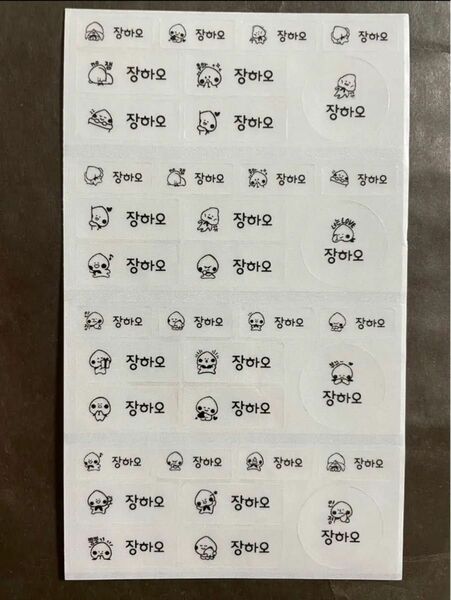 장하오 장하오 장하오 장하오
장하오 장하오
장하오
장하오 장하오
장하오 장하오 장하오 장하오
LOVE
장하오 장하오
장하오
장하오 장하오
장하오 장하오 장하오 장하오
장하오 장하오
장하오
장하오 장하오
장하오 장하오 장하오 장하오
장하오 장하오
장하오
장하오 장하오